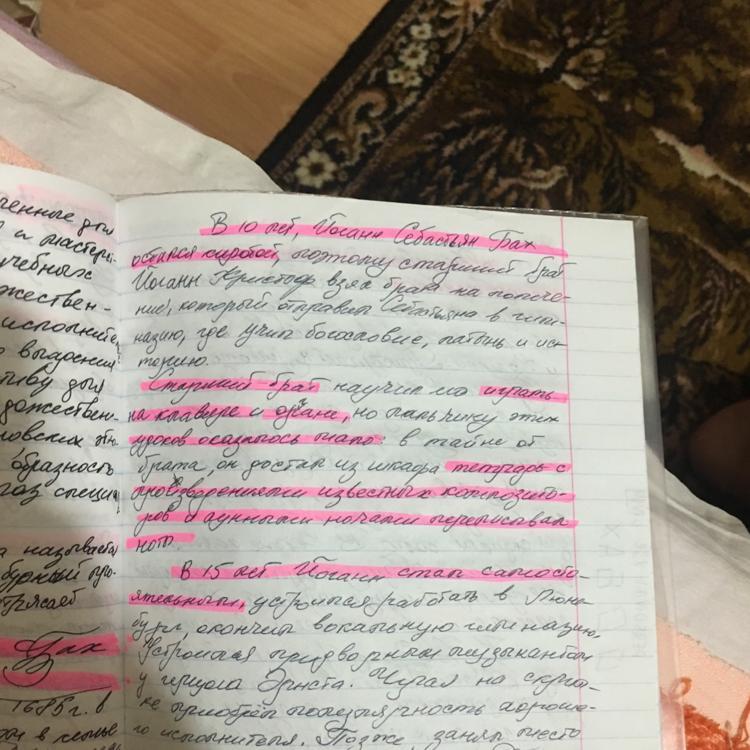 ченные для
и мастери-
учебных
жествен-
исполните
выдаении
тиву для
дожествен-
новских
образность
а называется
бурный
трясает
Бах
1685г. в
в семье
В 10 лет, Иоганн Себастьян Бах
остался сиротой, поэтому старший брат
Иоганн Кристоф взял брата на попече-
ние, который отправил Себастьяна в гим-
назию, где учил богословие, латынь и ис-
торию.
Старший брат научил его играть
на клавире и органе, но мальчику этих
уроков оказалось мало: в тайне от
брата, он достал из шкафа тетрадь с
произведениями известных композито-
ров и лунными ночами переписывал
ноты.
В 15 лет Иоганн стал самосто-
ятельным, устроился работать в Люне
бург, окончил вокальную гимназию.
Устроился придворным музыкантом
у герцога Эрнста. Играя на скрип-
ке приобрёл популярность хороше-
го исполнителя. Позже занял место